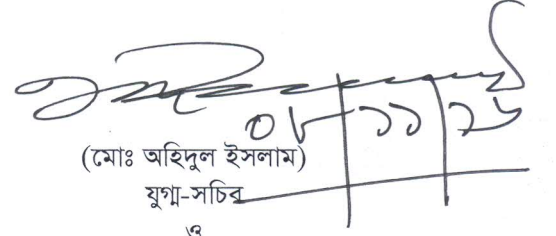 ০৮ ১১ ২৬
(মোঃ অহিদুল ইসলাম)
যুগ্ম-সচিব
ও